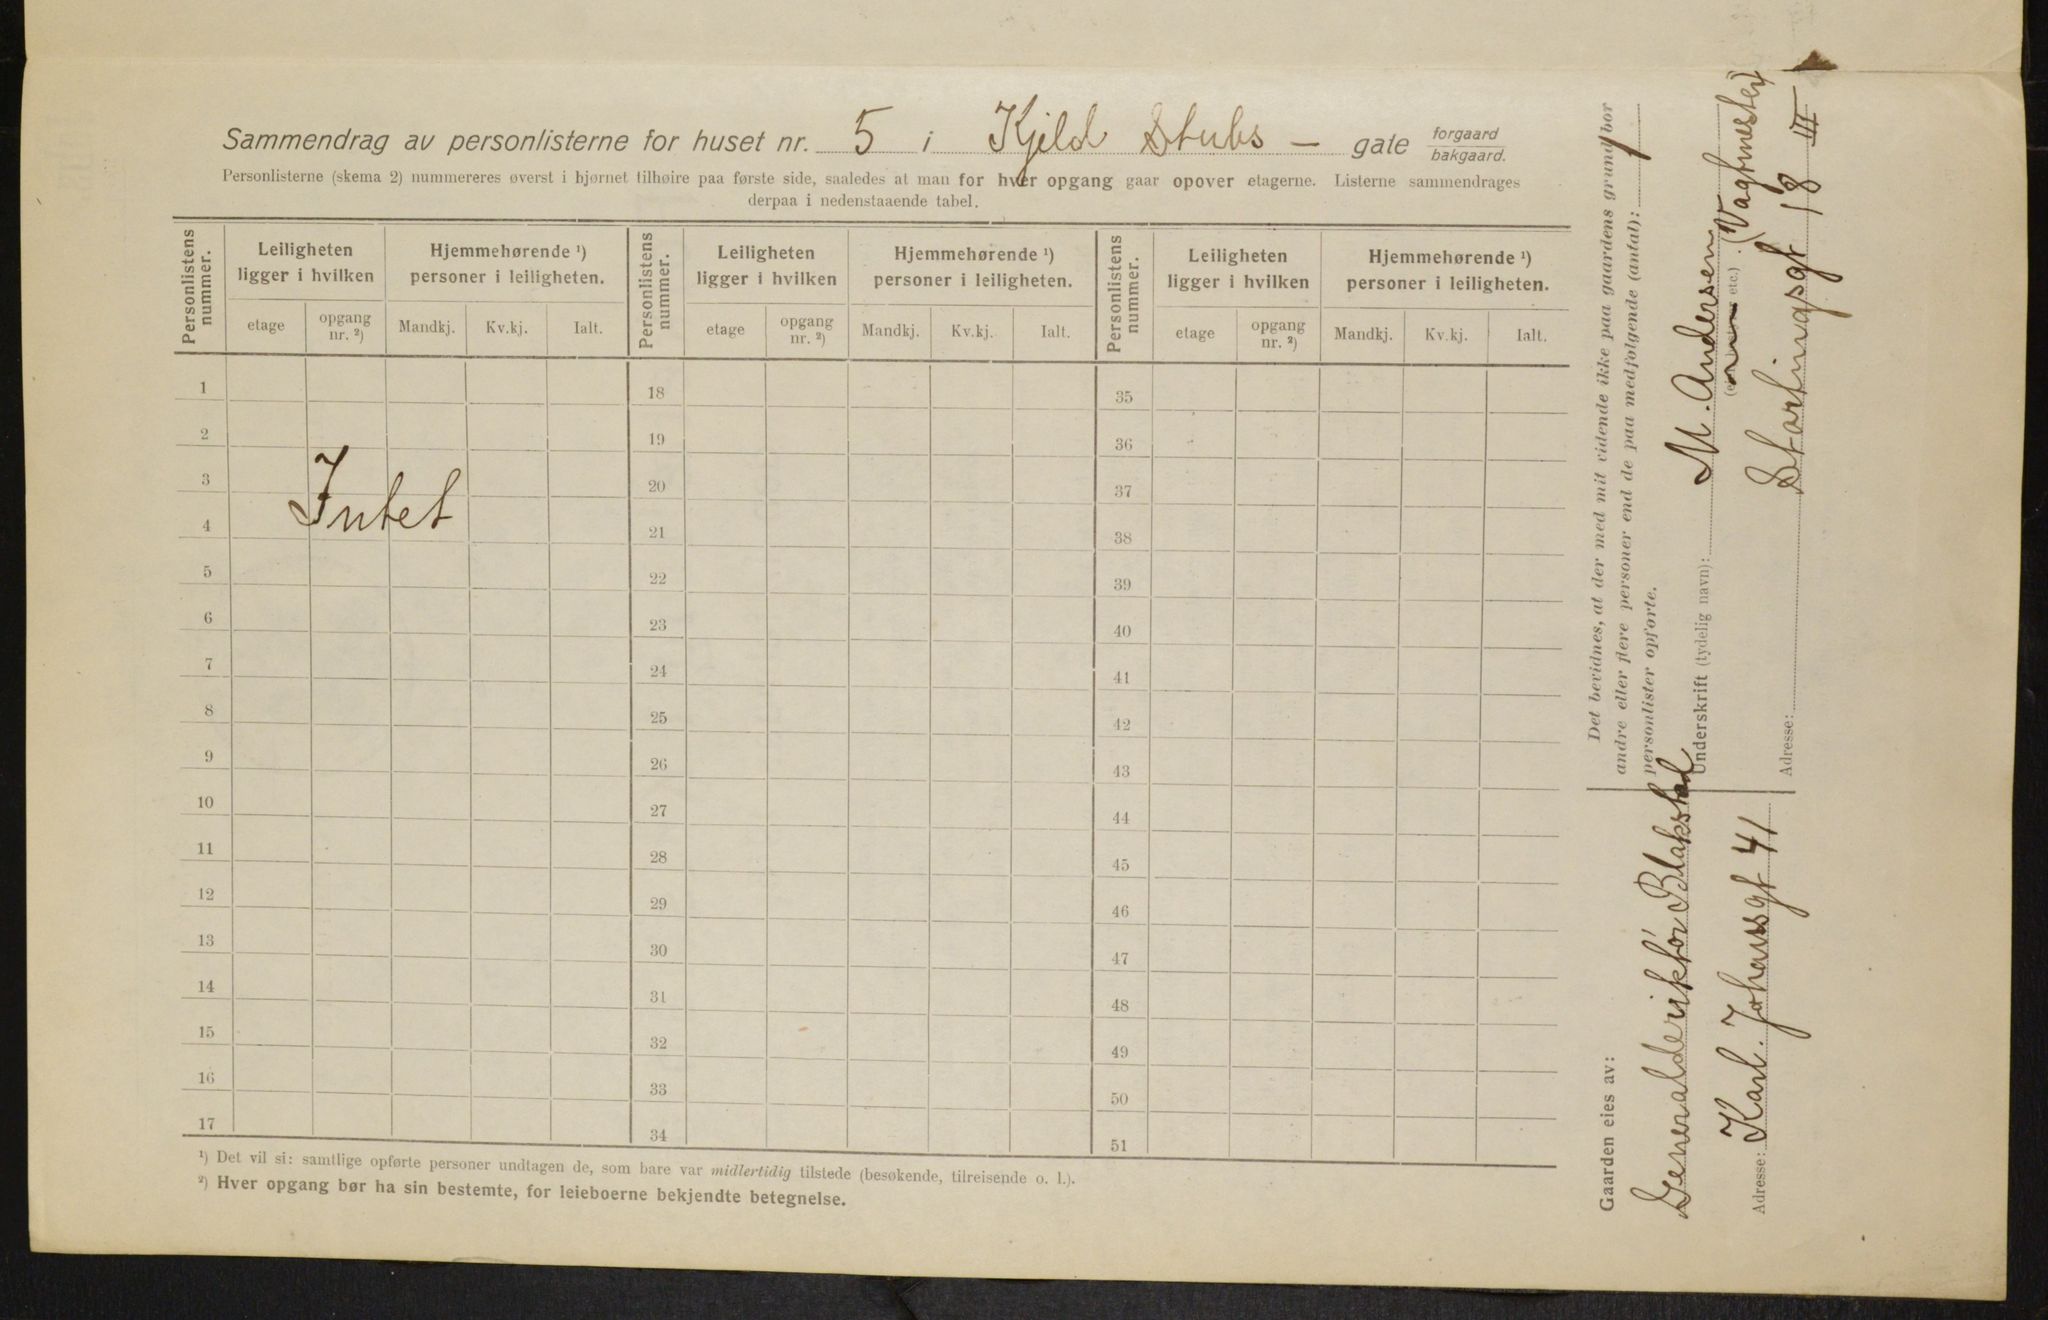 Sammendrag av personlisterne for huset nr. 5 i Kjeld Stubs - gate forgaard bakgaard.
Personlisterne (skema 2) nummereres øverst i hjørnet tilhøire paa første side, saaledes at man for hver opgang gaar opover etagerne. Listerne sammendrages
derpaa i nedenstaaende tabel.
Personlistens nummer. Leiligheten ligger i hvilken Hjemmehørende ¹) personer i leiligheten. Personlistens nummer. Leiligheten ligger i hvilken Hjemmehørende ¹) personer i leiligheten. Personlistens nummer. Leiligheten ligger i hvilken Hjemmehørende ¹) personer i leiligheten.
etage opgang nr. ²) Mandkj. Kv.kj. Ialt. etage opgang nr. ²) Mandkj. Kv.kj. Ialt. etage opgang nr. ²) Mandkj. Kv.kj. Ialt.
1 18 35
2 19 36
3 20 37
Intet
4 21 38
5 22 39
6 23 40
7 24 41
8 25 42
9 26 43
10 27 44
11 28 45
12 29 46
13 30 47
14 31 48
15 32 49
16 33 50
17 34 51
¹) Det vil si: samtlige opførte personer undtagen de, som bare var midlertidig tilstede (besøkende, tilreisende o. l.).
²) Hver opgang bør ha sin bestemte, for leieboerne bekjendte betegnelse.
Det bevidnes, at der med mit vidende ikke paa gaardens grund bor
andre eller flere personer end de paa medfølgende (antal): 1
personlister opførte.
Underskrift (tydelig navn): M. Andersen
etc.) (Vagtmester)
Adresse: Stortingsgt 18 III
Gaarden eies av:
Generaldirektør Blakstad
Adresse: Karl. Johansgt 41